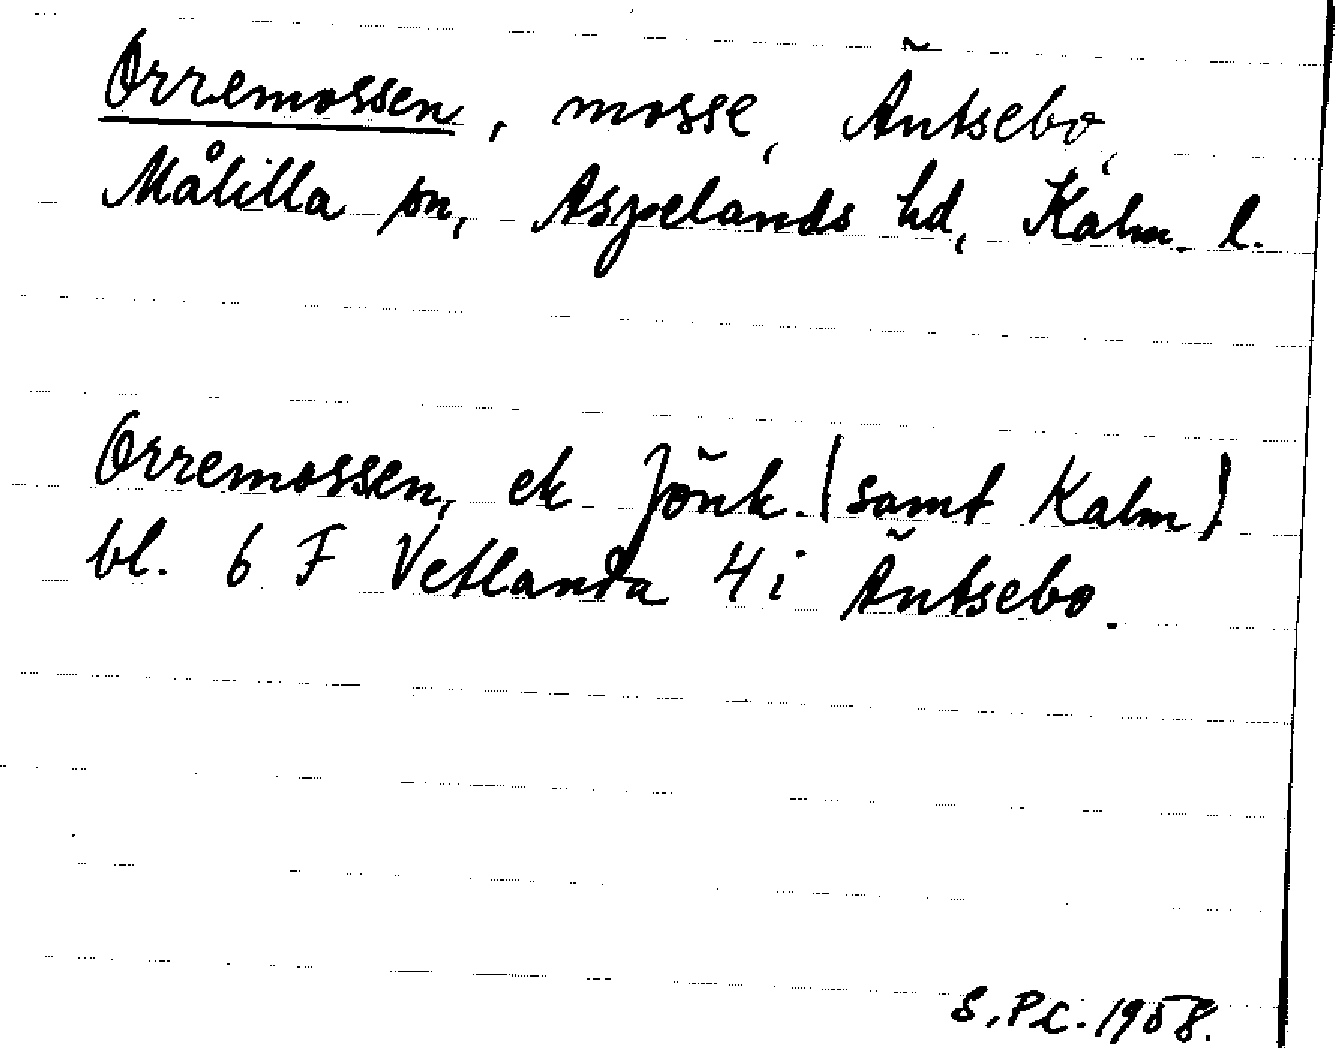 Orremossen, mosse, Äntsebo,
Målilla sn, Aspelands hd, Kalm. l.
Orremossen, ek Jönk. (samt Kalm)
bl. 6 F Vetlanda 4 i Äntsebo.
S.P.C. 1958.